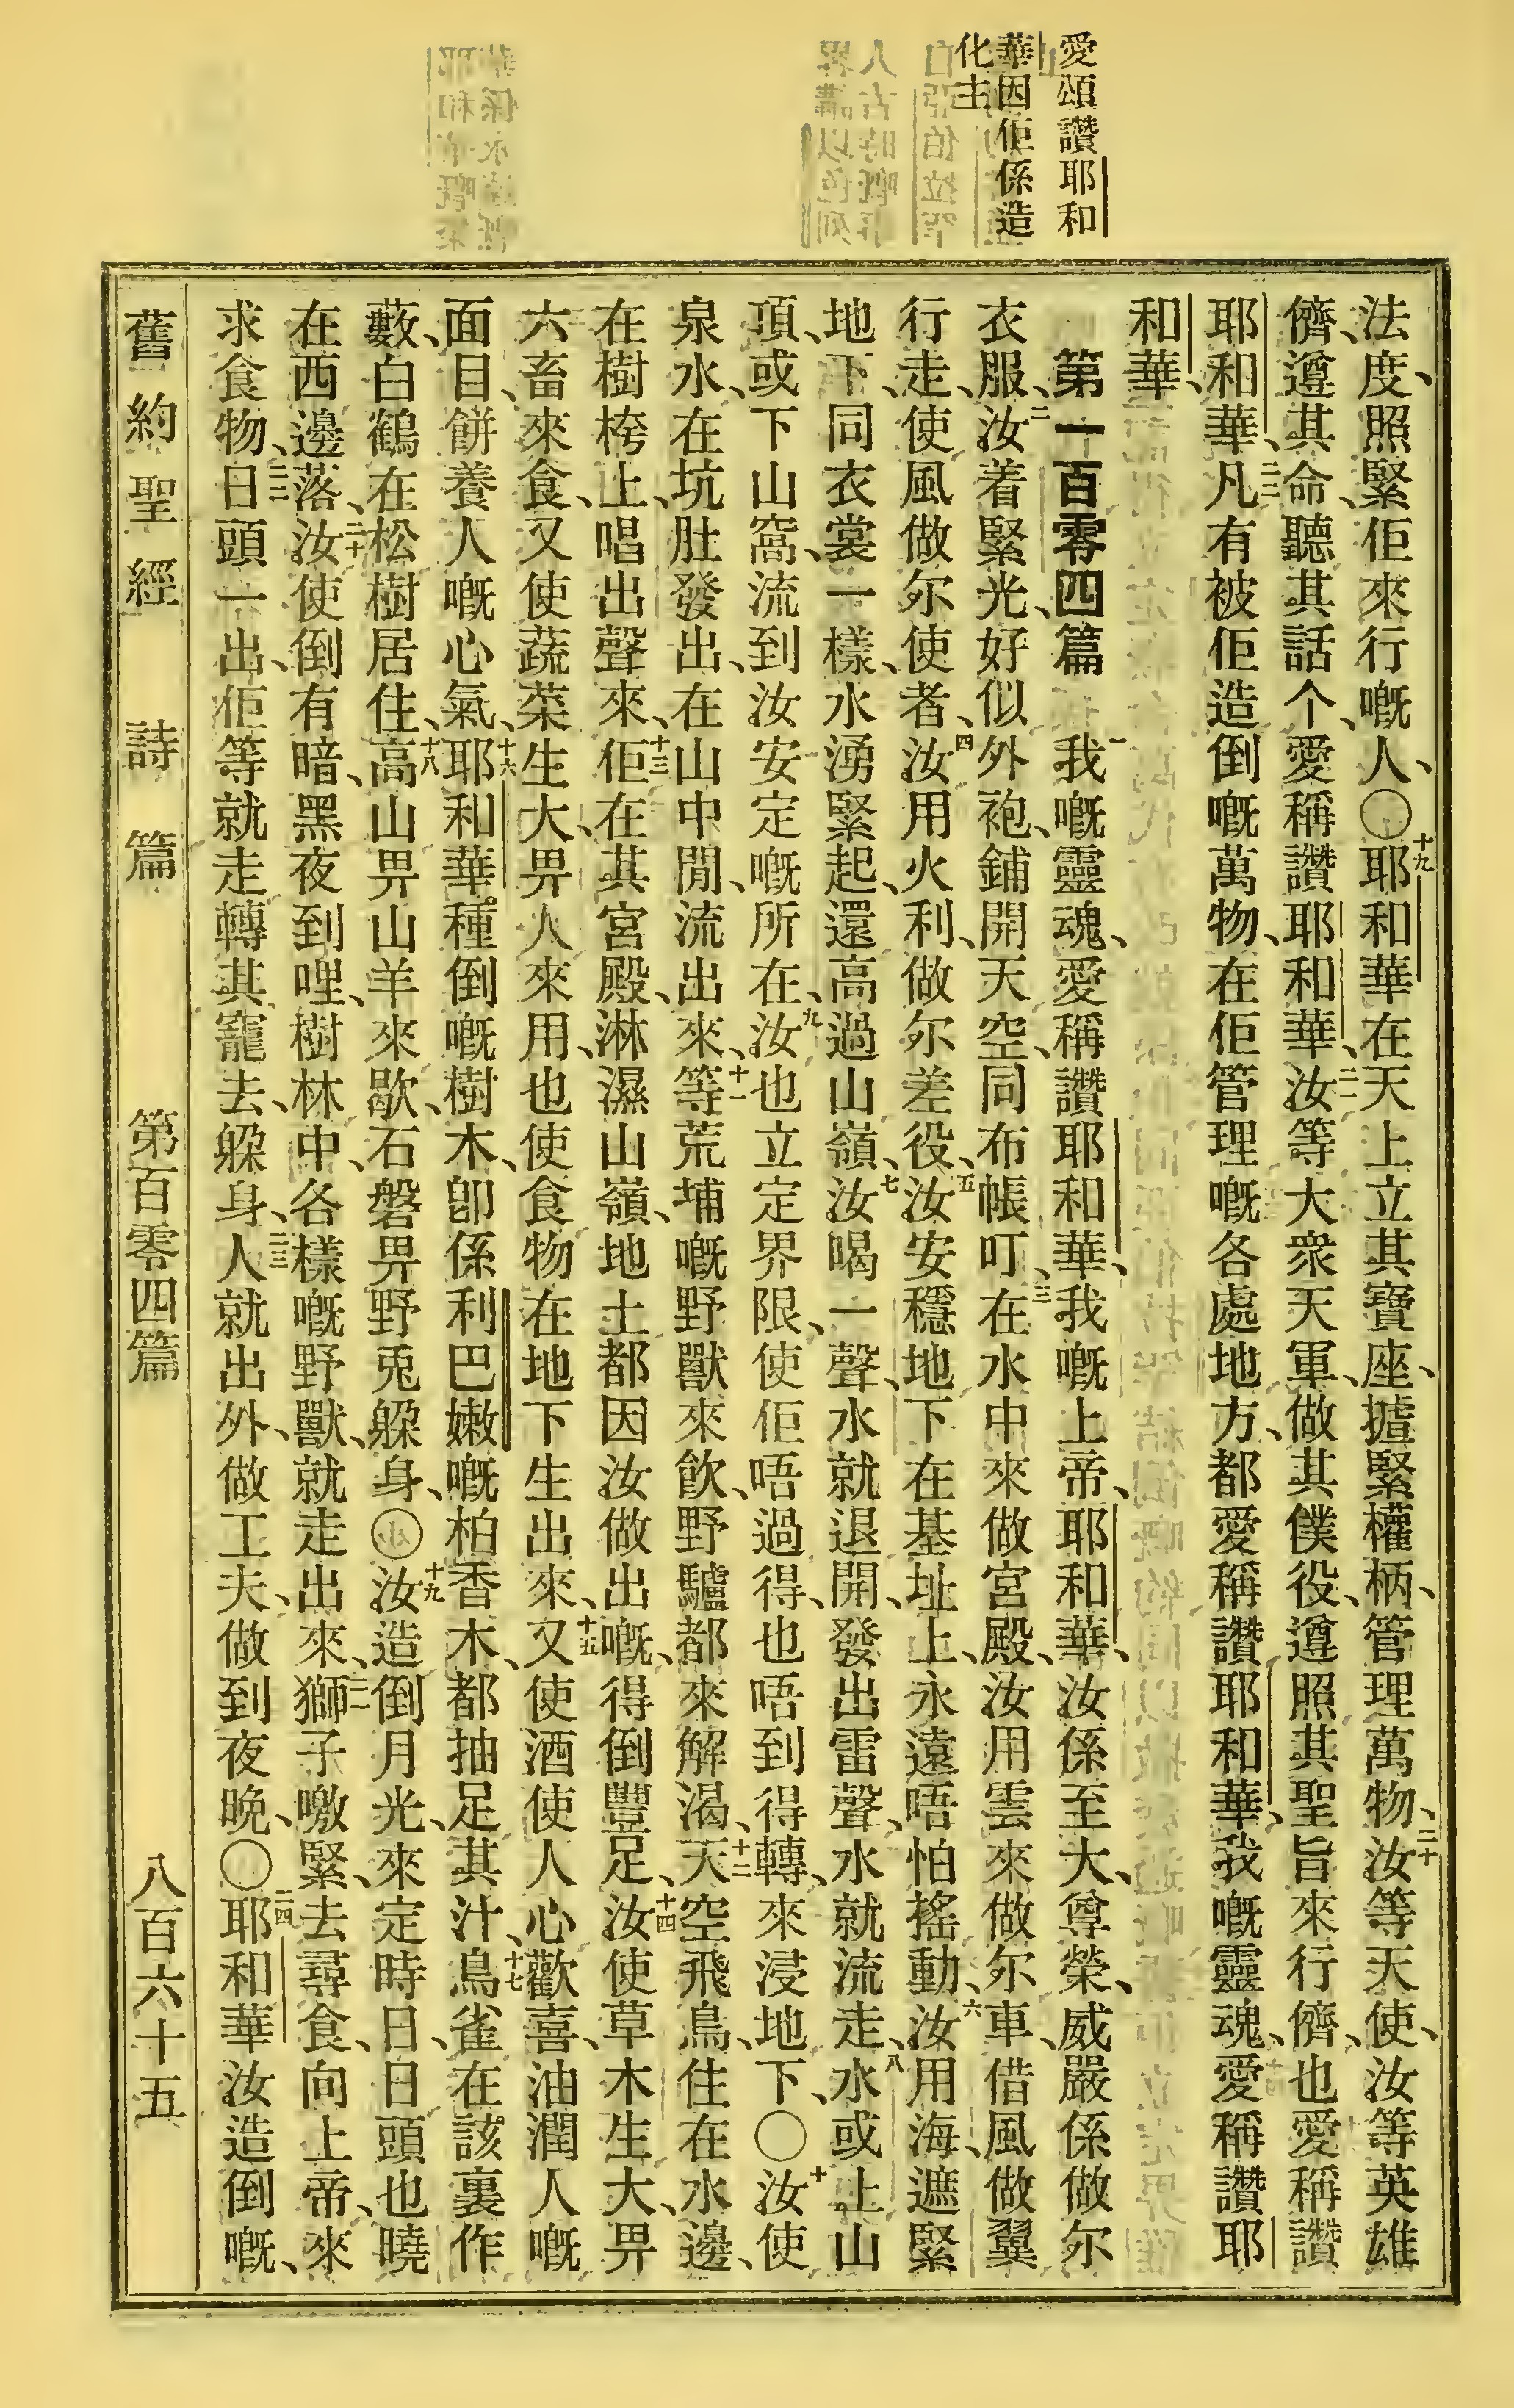 愛頌讚耶和
華因佢係造
化主
法度、照緊佢來行嘅人、〇十九耶和華在天上立其寶座、揸緊權柄、管理萬物、二十汝等天使、汝等英雄
儕、遵其命、聽其話个、愛稱讚耶和華、二一汝等大衆天軍、做其僕役、遵照其聖旨來行儕、也愛稱讚
耶和華、二二凡有被佢造倒嘅萬物、在佢管理嘅各處地方、都愛稱讚耶和華、我嘅靈魂、愛稱讚耶
和華、
第一百零四篇 一我嘅靈魂、愛稱讚耶和華、我嘅上帝、耶和華、汝係至大、尊榮、威嚴係做尔
衣服、二汝着緊光、好似外袍、鋪開天空、同布帳叮、三在水中來做宮殿、汝用雲來做尔車、借風做翼
行走、使風做尔使者、四汝用火利、做尔差役、五汝安穩地下在基址上、永遠唔怕搖動、六汝用海遮緊
地下、同衣裳一樣、水湧緊起、還高過山嶺、七汝喝一聲、水就退開、發出雷聲、水就流走、八水或上山
頂、或下山窩、流到汝安定嘅所在、九汝也立定界限、使佢唔過得、也唔到得轉、來浸地下、〇十汝使
泉水、在坑肚發出、在山中閒、流出來、十一等荒埔嘅野獸來飲、野驢都來解渴、十二天空飛鳥、住在水邊、
在樹桍上、唱出聲來、十三佢在其宮殿、淋濕山嶺、地土都因汝做出嘅、得倒豐足、十四汝使草木生大、畀
六畜來食、又使蔬菜生大、畀人來用、也使食物在地下生出來、十五又使酒使人心歡喜、油潤人嘅
面目、餅養人嘅心氣、十六耶和華種倒嘅樹木、卽係利巴嫩嘅柏香木、都抽足其汁、十七鳥雀在該裏作
藪、白鶴在松樹居住、十八高山畀山羊來歇、石磐畀野兎躱身、十九汝造倒月光、來定時日、日頭也曉
在西邊落、二十汝使倒有暗、黑夜到哩、樹林中、各樣嘅野獸、就走出來、二一獅子噭緊、去尋食、向上帝、來
求食物、二二日頭一出、佢等就走轉其竉去、躱身、二三人就出外、做工夫、做到夜晚、〇二四耶和華汝造倒嘅、
舊約聖經 詩篇 第百零四篇 八百六十五